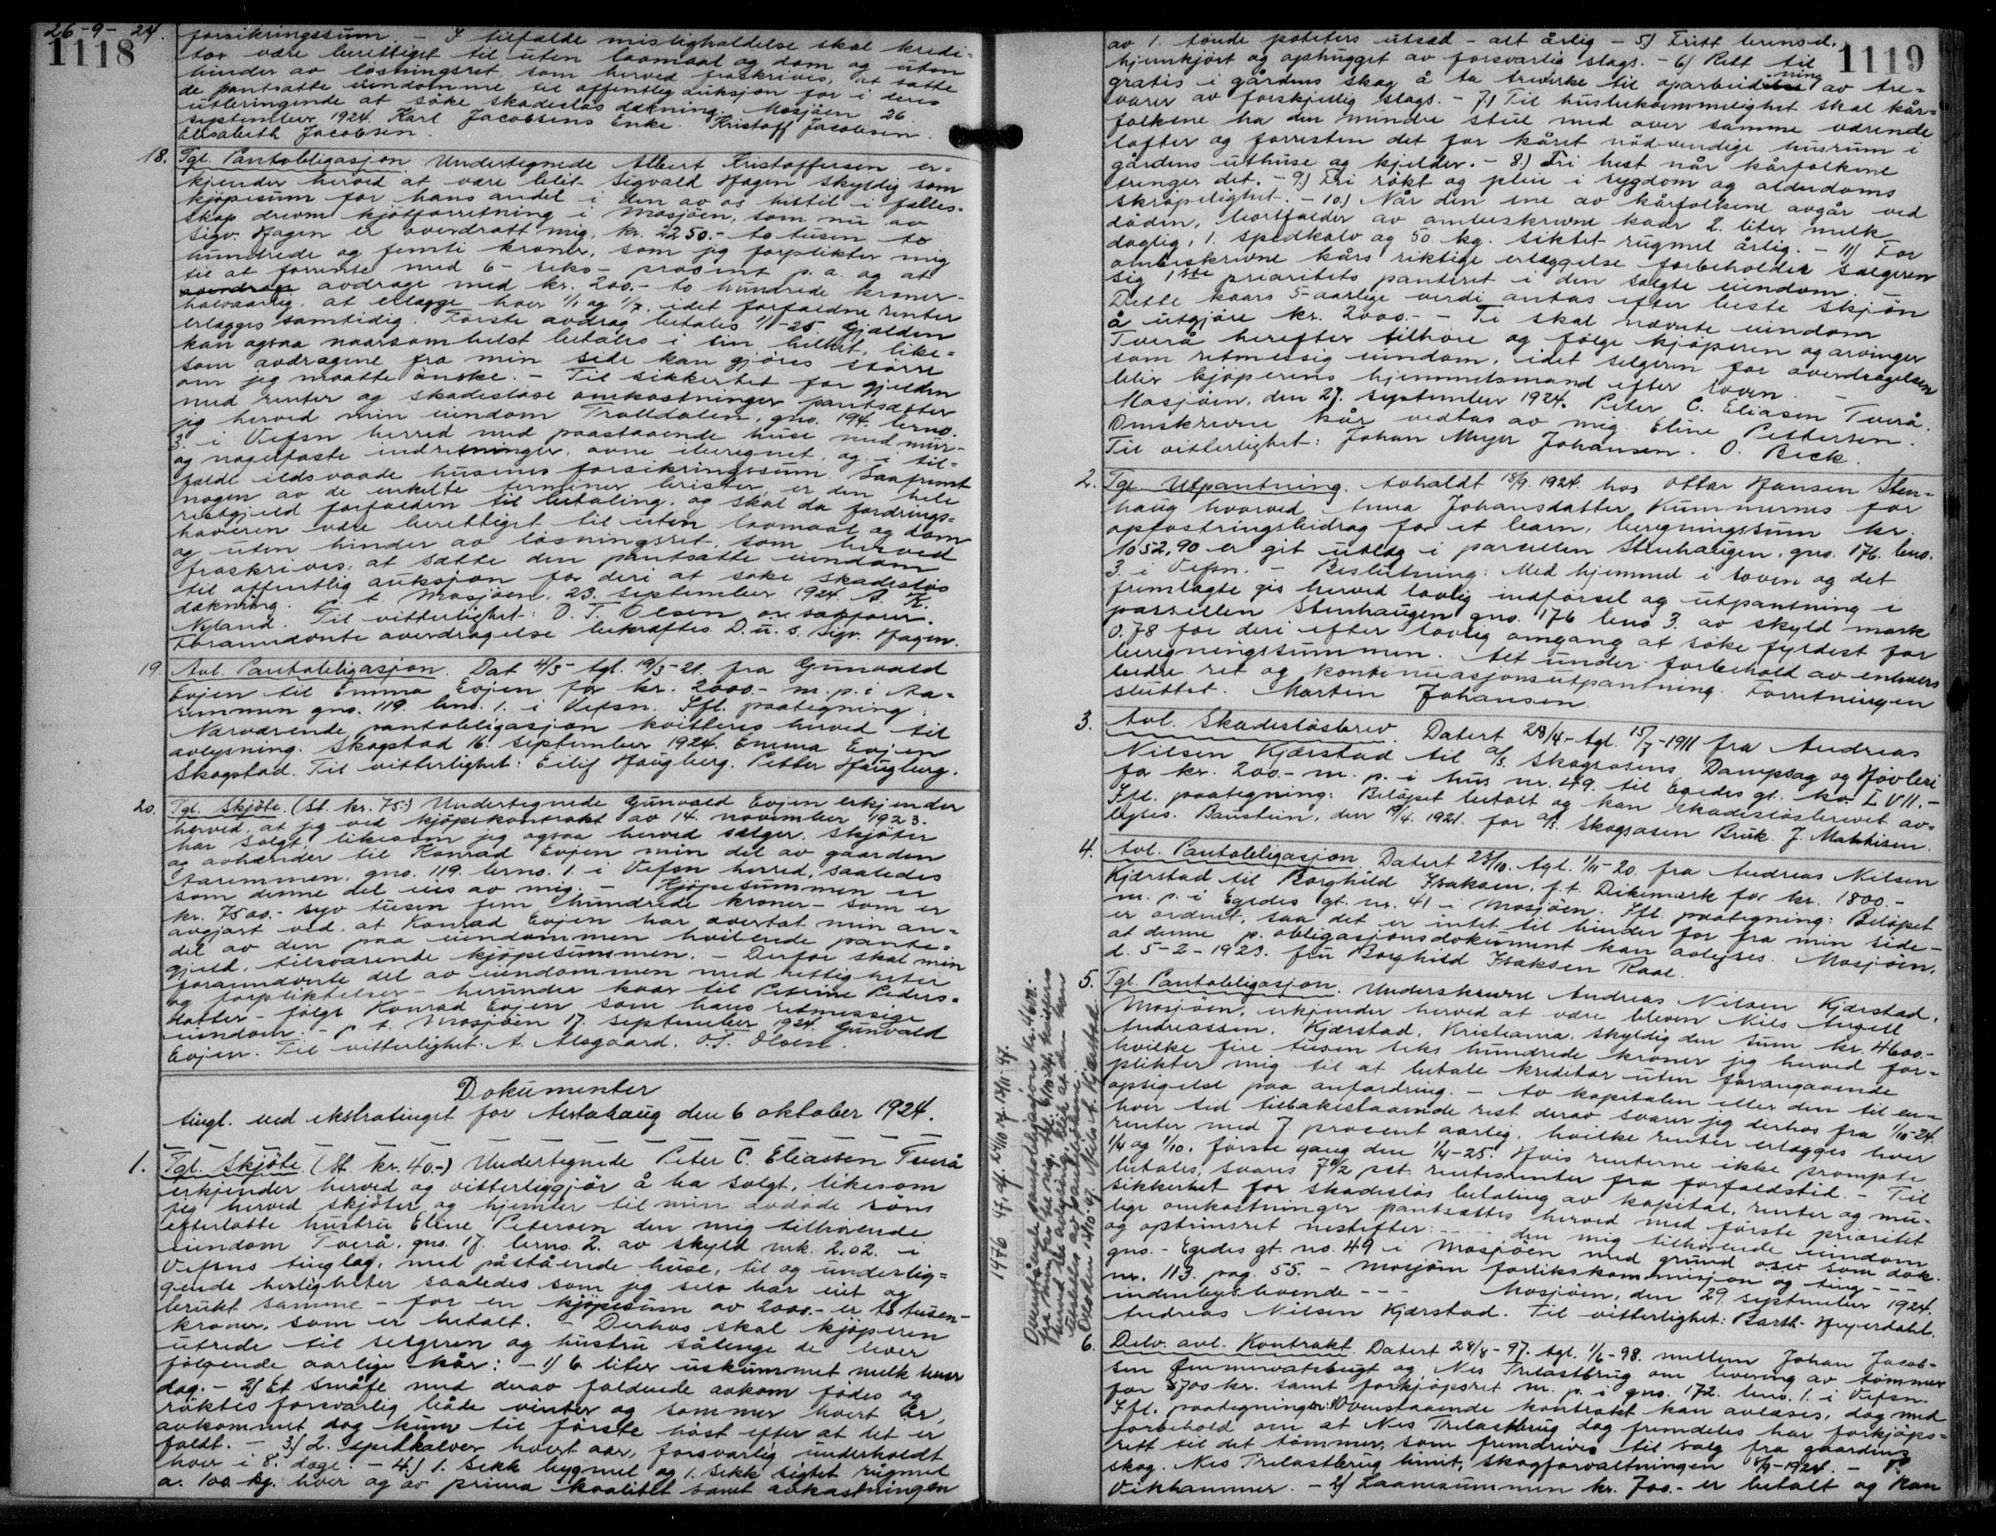 26-9-24.
1118
forsikringssum. - I tilfælde misligholdelse skal kredi-
tor være berettiget til uten lovmaal og dom og uten
hinder av løsningsret, som herved fraskrives, at sætte
de pantsatte eiendomme til offentlig auksjon for i deres
utbringende at søke skadesløs dækning. Mosjøen 26.
september 1924. Karl Jacobsens Enke. Kristoff Jacobsen.
Elisabeth Jacobsen.
18. Tgl. Pantobligasjon. Undertegnede Albert Kristoffersen er-
kjender herved at være blit Sigvald Hagen skyldig som
kjøpesum for hans andel i den av os hittil i fælles-
skap drevne kjøtforretning i Mosjøen, som nu av
Sigv. Hagen er overdratt mig, kr. 2250.- to tusen to
hundrede og femti kroner, som jeg forplikter mig
til at forrente med 6 - seks - prosent p. a. og at
avdrage med kr. 200.- to hundrede kroner -
halvaarlig, at erlægge hver 1/1 og 1/7, idet forfaldne renter
erlægges samtidig. Første avdrag betales 1/1-25. Gjælden
kan ogsaa naarsomhelst betales i sin helhet, like-
som avdragene fra min side kan gjøres større
om jeg maatte ønske. - Til sikkerhet for gjælden
med renter og skadesløse omkostninger pantsætter
jeg herved min eiendom Trolldalen, gno. 194, brno.
3. i Vefsn herred med paastaaende huse med mur-
og nagelfaste indretninger, ovne iberegnet, og i til-
fælde ildsvaade husenes forsikringssum. Saafremt
nogen av de enkelte terminer brister, er den hele
restgjæld forfalden til betaling, og skal da fordrings-
haveren være berettiget til uten lovmaal og dom
og uten hinder av løsningsret, som herved
fraskrives, at sætte den pantsatte eiendom
til offentlig auksjon for deri at søke skadesløs
dækning. p. t. Mosjøen, 23. september 1924. A. K.
Nyland. Til vitterlighet: O. T. Olsen o.r. sakfører.
Forannævnte overdragelse bekræftes D. u. s. Sigv. Hagen.
19. Avl. Pantobligasjon. Dat 4/3- tgl. 19/3-21. fra Gunvald
Evjen til Emma Evjen for kr. 2000.- m. p. i Aa-
remmen gno. 119. brno. 1. i Vefsn. Sfl. paategning:
Nærværende pantobligasjon kvitteres herved til
avlysning. Skogstad 16. september 1924. Emma Evjen
Skogstad. Til vitterlighet: Eilif Haugberg. Petter Haugberg.
20. Tgl. Skjøte. (St. kr. 75.-) Undertegnede Gunvald Evjen erkjender
herved, at jeg ved kjøpekontrakt av 14. november 1923.
har solgt, likesom jeg ogsaa herved sælger, skjøter
og avhænder til Konrad Evjen min del av gaarden
Aaremmen, gno. 119. brno. 1. i Vefsn herred, saaledes
som denne del eies av mig. - Kjøpesummen er
kr. 7500.- syv tusen fem hundrede kroner - som er
avgjort ved, at Konrad Evjen har overtat min an-
del av den paa eiendommen hvilende pante-
gjæld, tilsvarende kjøpesummen. - Derfor skal min
forannævnte del av eiendommen med rettigheter
og forpliktelser - herunder kaar til Petrine Peders-
datter - følge Konrad Evjen som hans retmæssige
eiendom. - p. t. Mosjøen 17. september 1924 Gunvald
Evjen. Til vitterlighet: A. Alsgaard. O. T. Olsen.
Dokumenter
tingl. ved ekstratinget for Alstahaug den 6 oktober 1924.
1. Tgl. Skjøte. (St. kr. 40.-) Undertegnede Peter C. Eliassen Tverå
erkjender herved og vitterliggjør å ha solgt, likesom
jeg herved skjøter og hjemler til min avdøde søns
efterlatte hustru Eline Petersen den mig tilhørende
eiendom Tverå, gno. 17. brno. 2. av skyld mk. 2.02. i
Vefsns tinglag, med påstående huse, til og underlig-
gende herligheter saaledes som jeg selv har eiet og
brukt samme - for en kjøpesum av 2000.- er to tusen -
kroner, som er betalt. - Derhos skal kjøperen
utrede til selgeren og hustru sålenge de lever
følgende aarlige kår: - 1) 6 liter uskummet melk hver
dag. - 2) Et småfe med derav faldende avkom fødes og
røktes forsvarlig både vinter og sommer hvert år,
avkommet dog kun til første høst efter at det er
født. - 3) 2. spedkalver hvert aar, forsvarlig underholdt
hver i 8. dage. - 4) 1. sekk bygmel og 1. sekk sigtet rugmel
a. 100 kg. hver og av prima kvalitet samt avkastningen
1119
av 1. tønde poteters utsæd - alt årlig - 5) Fritt brensel,
hjemkjørt og ophugget av forsvarlig slags. - 6) Rett til
gratis i gårdens skog å ta trevirke til oparbeidning av tre-
varer av forskjellig slags. - 7) Til husbekvemmelighet skal kår-
folkene ha den mindre stue med over samme værende
lofter og forresten det for kåret nødvendige husrum i
gårdens uthuse og kjelder. - 8) Fri hest når kårfolkene
trenger det. - 9) Fri røkt og pleie i sygdom og alderdoms
skrøpelighet. - 10) Når den ene av kårfolkene avgår ved
døden, bortfalder av ombeskrevne kaar 2. liter melk
daglig, 1. spedkalv og 50. kg. siktet rugmel årlig. - 11) For
ombeskrivne kårs riktige erlæggelse forbeholder sælgeren
sig 1ste prioritets panteret i den solgte eiendom. -
Dette kaars 5-aarlige verdi antas efter beste skjøn
å utgjøre kr. 2000.- - Ti skal nævnte eiendom
Tverå herefter tilhøre og følge kjøperen og arvinger
som retmessig eiendom, idet selgeren for overdragelsen
blir kjøperens hjemmelsmand efter loven. -
Mosjøen, den 27. september 1924. Peter C. Eliasen Tverå.
Omskrevne kår vedtas av mig. Eline Pettersen.
Til vitterlighet: Johan Meyer Johansen. O. Beck.
2. Tgl. Utpantning. Avholdt 18/9. 1924. hos Ottar Hansen Sten-
haug hvorved Anna Johansdatter Kummernes for
opfostringsbidrag for et barn, beregningssum kr.
1052,90 er git utlæg i parsellen Stenhaugen, gno. 176. brno.
3. i Vefsn. - Beslutning: Med hjemmel i loven og det
fremlagte gis herved lovlig indførsel og utpantning i
parsellen Stenhaugen gno. 176 brno 3. av skyld mark
0.78 for deri efter lovlig omgang at søke fyldest for
beregningssummen. Alt under forbehold av enhvers
bedre ret og kontinuasjonsutpantning. Forretningen
sluttet. Morten Johansen.
3. Avl. Skadesløsbrev. Datert 28/4- tgl. 15/7-1911 fra Andreas
Nilsen Kjærstad til A/S. Skogsosens Dampsag og Høvleri
for kr. 200.- m. p. i hus nr. 49. til Egedes gt. kv. LVII. -
Sfl. paategning: Beløpet betalt og kan skadesløsbrevet av-
lyses. Baustein, den 19/4. 1921. for A/S. Skogsosen Bruk. J. Mathisen.
4. Avl. Pantobligasjon. Datert 28/10. tgl. 1/11-20. fra Andreas Nilsen
Kjærstad til Borghild Isaksen, f. t. Dikemark for kr. 1800.-
m. p. i Egedes gt. nr. 41 i Mosjøen. Sfl. paategning: Beløpet
er ordnet, saa det er intet til hinder for fra min side -
at denne p. obligasjonsdokument kan avlyses. Mosjøen,
d. 5-2-1923. fru Borghild Isaksen Raae.
5. Tgl. Pantobligasjon. Underskrevne Andreas Nilsen Kjærstad,
Mosjøen, erkjender herved at være bleven Nils Angell
Andreassen, Kjærstad, Kristiania, skyldig den sum kr. 4600.-
hvilke fire tusen seks hundrede kroner jeg herved for-
plikter mig til at betale kreditor uten forangaaende
opsigelse paa anfordring. - Av kapitalen eller den til en-
hver tid tilbakestaaende rest derav svarer jeg derhos fra 1/10-24.
renter med 7 procent aarlig, hvilke renter erlægges hver
1/4 og 1/10, første gang den 1/4-25. Hvis renterne ikke prompte
betales, svares 7 1/2 pct. rentesrenter fra forfaldstid. - Til
sikkerhet for skadesløs betaling av kapital, renter og mu-
lige omkostninger pantsættes herved med første prioritet
og optrinsret nestefter: - - - den mig tilhørende eiendom
gno. - Egedes gt. no. 49 i Mosjøen med grund osv. som dok.
nr. 113. pag. 55. - Mosjøen forlikskommisjon og ting - - -
indenbys boende - - - Mosjøen, den 29. september 1924.
Andreas Nilsen Kjærstad. Til vitterlighet: Barth. Heyerdahl.
6. Delv. avl. Kontrakt. Datert 28/8-97. tgl. 1/6-98. mellem Johan Jacob-
sen Ømmervatsbugt og Nes Trelastbrug om levering av tømmer
for 5700 kr. samt forkjøpsret m. p. i gno. 172. brno. 1. i Vefsn.
Sfl. paategninger: 1) Ovenstaaende kontrakt kan avlæses, dog med
forbehold om at Nes Trelastbrug dog fremdeles har forkjøps-
rett til det tømmer, som fremdrives til salg fra gaardens
skog. Nes Trelastbrug limit, Skogforvaltningen 8/9-1924. -
Vikhammer. - 2) Laanesummen kr. 700.- er betalt og kan
1476 47. af. 24/10 og 13/11 47.
Ovenstående pantobligasjon kr. 4600.-
fra min far til mig, tgl. 6/10-24. kvitteres
herved til avlysning, idet at den kan
slettes av pantebøkene.
Nils A. Kjærstad.